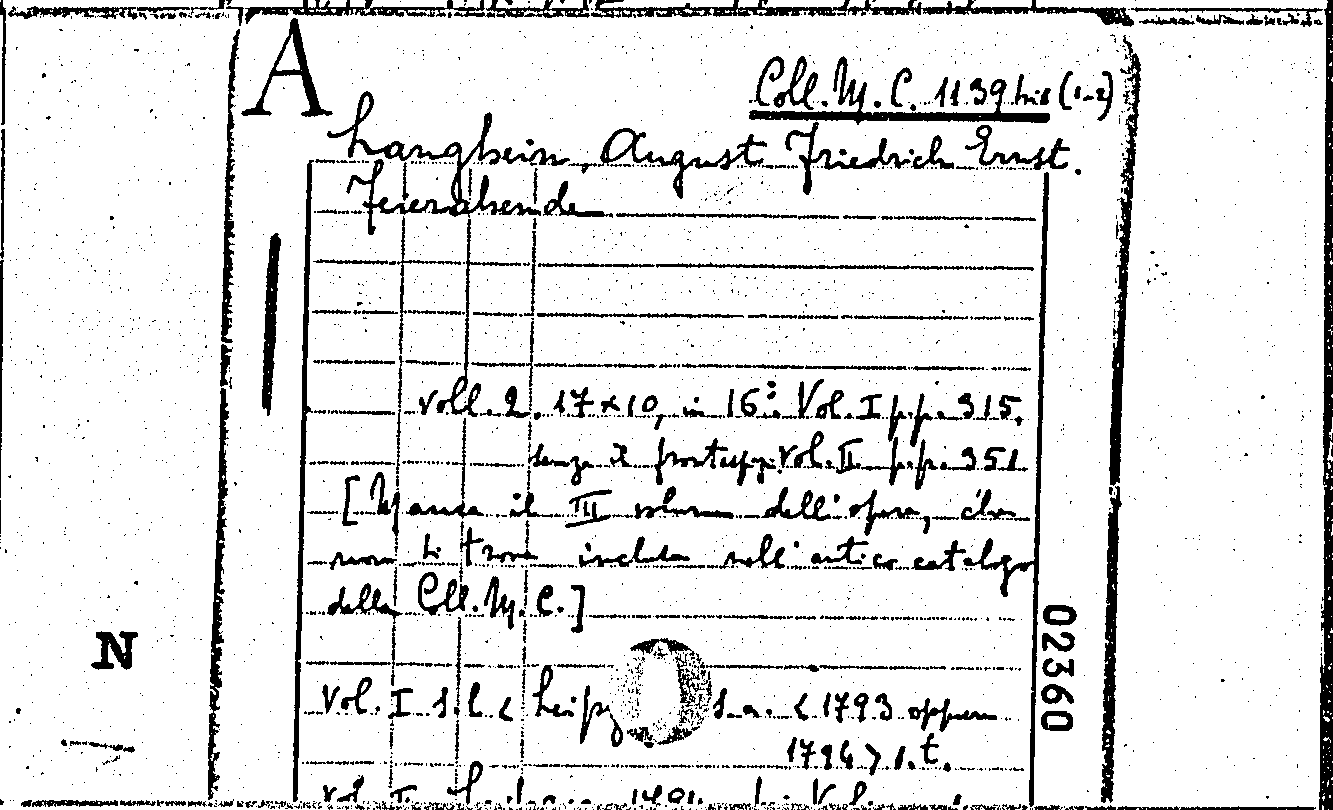 A
Coll. M. C. 1139 bis (1-2)
Langbein, August Friedrich Ernst.
Feierabende
voll. 2. 17×10, in 16°. Vol. I pp. 315,
senza il frontesp. Vol. II pp. 351
[Manca il III volume dell'opera, che
non si trova inclusa nell'antico catalogo
della Coll. M. C.]
N
02360
Vol. I s. l. < Leipz s. a. < 1793 oppure
1794 > s. t.